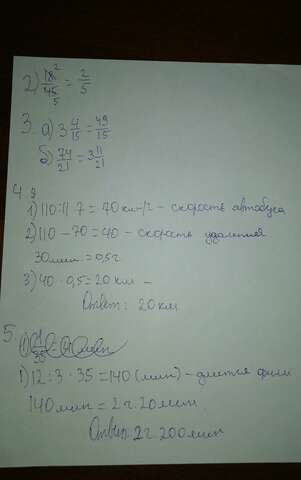 2) 18²/45₅ = 2/5
3. а) 3 4/15 = 49/15
б) 74/21 = 3 11/21
4.
1) 110:11·7 = 70 км/ч - скорость автобуса
2) 110 - 70 = 40 - скорость удаления
30мин = 0,5ч
3) 40 · 0,5 = 20 км -
Ответ: 20 км
5.
1) 12:3·35 = 140 (мин) - длится фильм
140 мин = 2 ч. 20 мин
Ответ: 2 ч. 200 мин